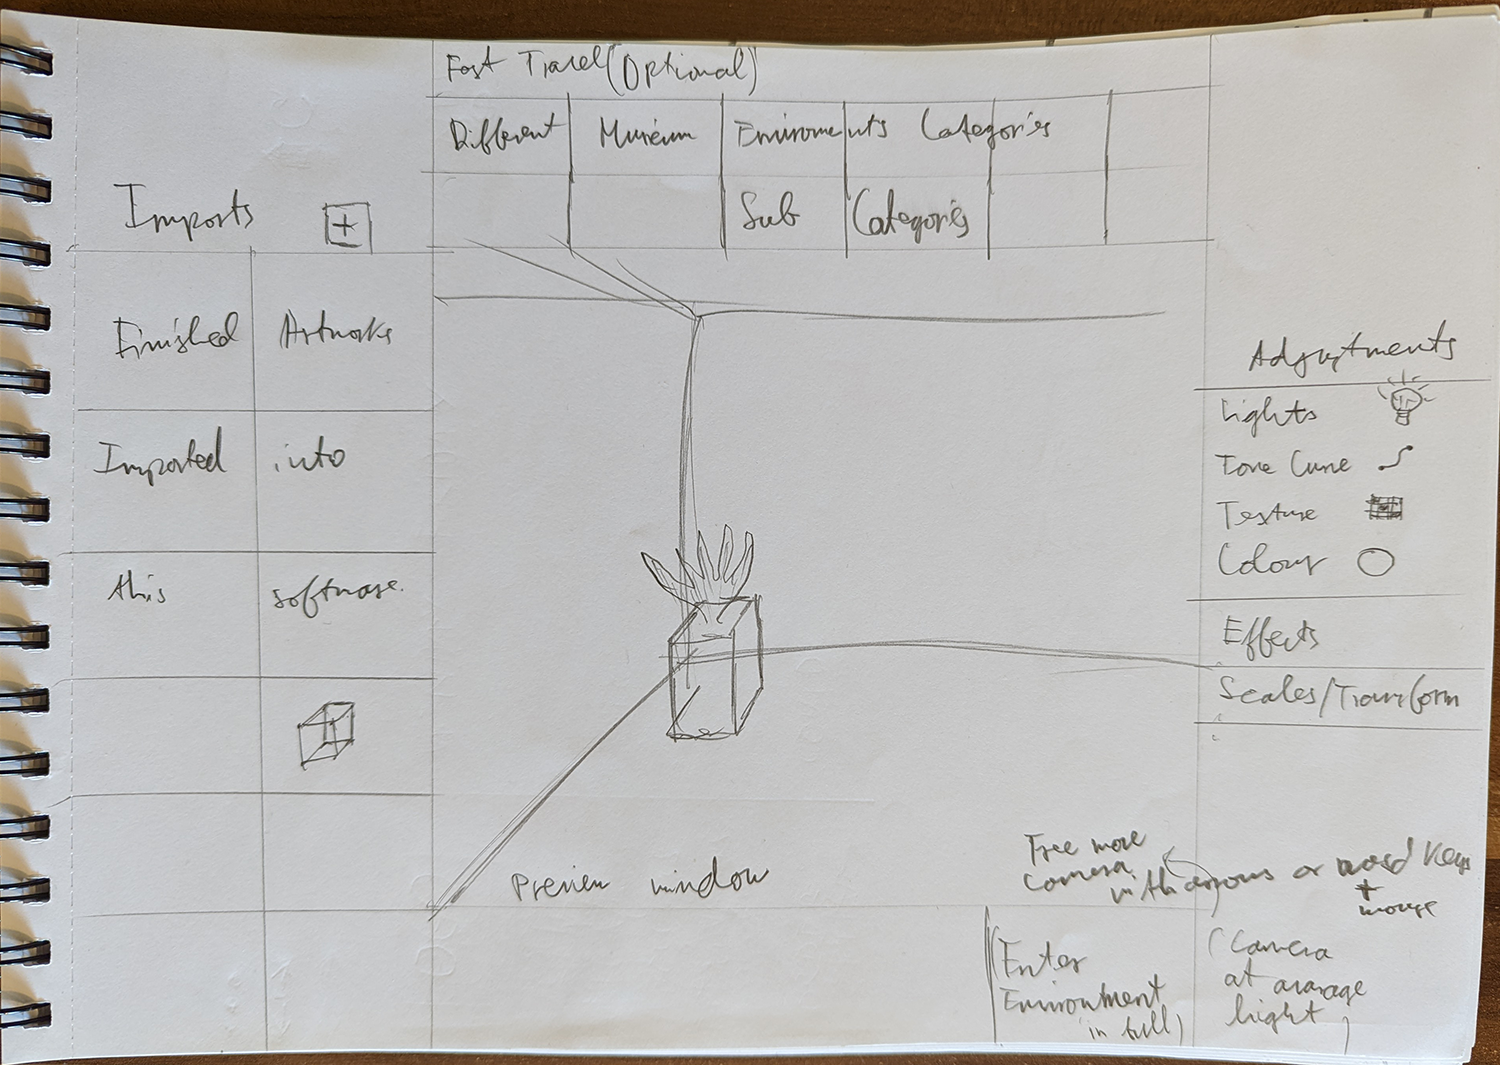 Fast Travel (Optional)
Different Museum Enviroments Categories
Sub Categories
Imports +
Finished Artworks
Imported into
this software.
Adjustments
Lights
Tone Curve
Texture
Colour
Effects
Scales/Transform
Preview window
Free move
Camera
with arrows or wasd Keys
+
mouse
Enter
Environment
in full)
(Camera
at avarage
hight)